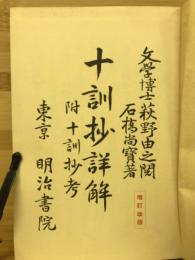 文學博士萩野由之閲
石橋尚寶著
十訓抄詳解
附十訓抄考
増訂改版
東京 明治書院